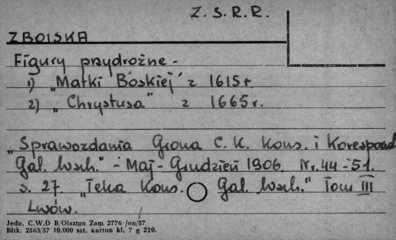 Z. S. R. R.
ZBOISKA
Figury przydrożne -
1) "Matki Boskiej" z 1615 r.
2) "Chrystusa" z 1665 r.
"Sprawozdania Grona C. K. Kons. i Korespond
Gal. Wsch." - Maj - Grudzień 1906. Nr. 44 - 51.
s. 27. "Teka Kons. Gal. Wsch." Tom III
Lwów.
Jedn. C.W.D B/Olsztyn Zam. 2776/on/57
Bltk. 2563/57 10.000 szt. karton kl. 7 g 220.